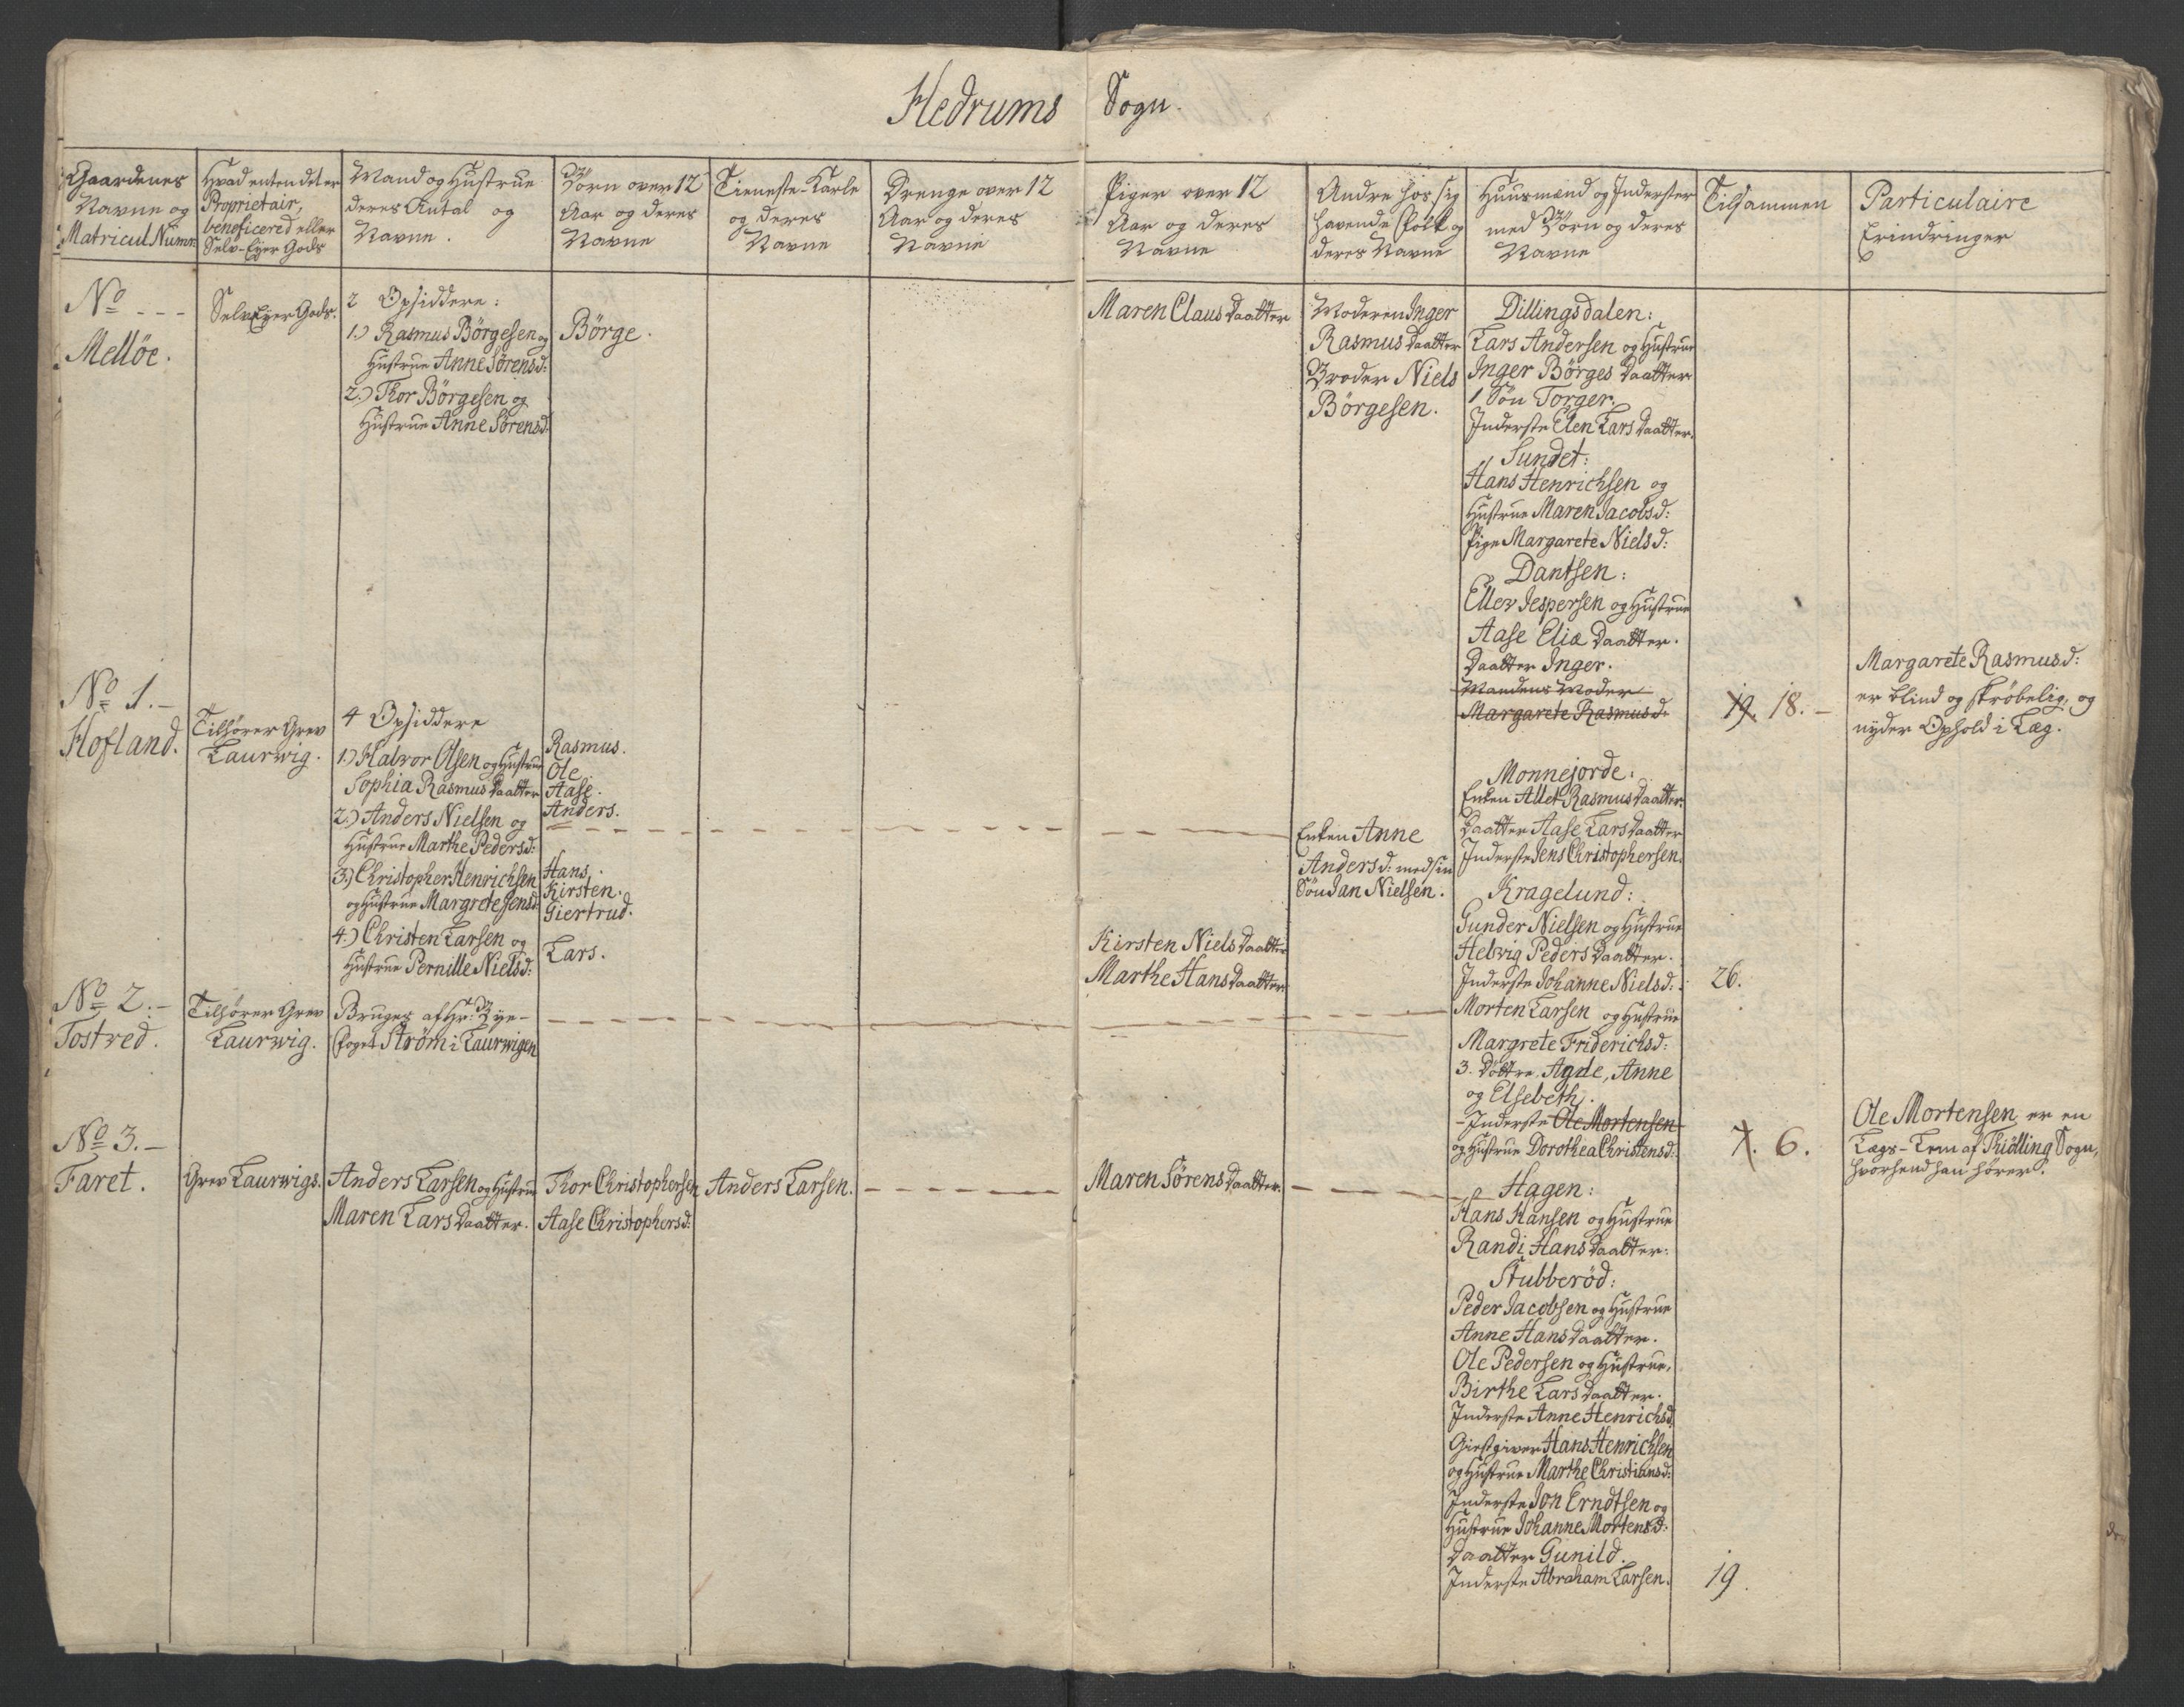 Hedrums Sogn.
Gaardenes
Navne og
Matricul Num:
Hvad enten det er
Proprietair,
beneficered eller
Selv-Ejer Gods
Mand og Hustrue
deres Antal og
Navne.
Börn over 12
Aar og deres
Navne
Tieneste-Karle
og deres
Navne
Drenge over 12
Aar og deres
Navne
Piger over 12
Aar og deres
Navne
Andre hos sig
havende Folk og
deres Navne
Huusmænd og Inderster
med Börn og deres
Navne
Tilsammen
Particulaire
Erindringer
No - - -
Mellöe.
SelvEjer Gods.
2 Opsiddere:
1.) Rasmus Börgesen og
Hustrue Anne Sörensd:
2.) Thor Börgesen og
Hustrue Anne Sörensd:
Börge.
Maren Claus Daatter
Moderen Inger
Rasmus Daatter
Broder Niels
Börgesen.
Dillingsdalen:
Lars Andersen og Hustrue
Inger Börges Daatter
1 Sön Torger.
Inderste Elen Lars Daatter.
Sundet:
Hans Henrichsen og
Hustrue Maren Jacobsd:
Pige Margarete Nielsd:
Dantsen:
Ellev Jespersen og Hustrue
Aase Eliæ Daatter.
Daatter Inger.
Mandens Moder
Margarete Rasmusd:
19. 18. -
Margarete Rasmusd:
er blind og skröbelig, og
nyder Ophold i Læg.
No 1. -
Hofland.
Tilhörer Grev
Laurwig.
4 Opsiddere
1.) Halvor Olsen og Hustrue
Sophia Rasmus Daatter
2.) Anders Nielsen og
Hustrue Marthe Pedersd:
3.) Christopher Henrichsen
og Hustrue Margrete Jensd:
4.) Christen Larsen og
Hustrue Pernille Nielsd:
Rasmus.
Ole
Aase.
Anders.
Hans.
Kirsten.
Giertrud.
Lars.
Kirsten Niels Daatter
Marthe Hans Daatter.
Enken Anne
Andersd: med sin
Sön Jan Nielsen.
Monnejorde:
Enken Allet Rasmus Daatter.
Daatter Aase Lars Daatter
Inderste Jens Christophersen.
Kragelund:
Gunder Nielsen og Hustrue
Helvig Peders Daatter.
Inderste Johanne Nielsd:
26.
No 2. -
Tostved.
Tilhörer Grev
Laurwig.
Bruges af Hr: Bye-
foget Ström i Laurwigen
Morten Larsen og Hustrue
Margrete Friderichsd:
3. Döttre. Agde, Anne
og Elsebeth.
- Inderste Ole Mortensen
og Hustrue Dorothea Christensd:
7. 6.
Ole Mortensen er en
Lægs-Lem af Thiölling Sogn,
hvorhend han hörer.
No 3. -
Faret.
Grev Laurwigs.
Anders Larsen og Hustrue
Maren Lars Daatter.
Thor Christophersen
Aase Christophersd:
Anders Larsen.
Maren Sörens Daatter.
Hagen:
Hans Hansen og Hustrue
Randi Hans Daatter.
Stubberöd:
Peder Jacobsen og Hustrue
Anne Hans Daatter.
Ole Pedersen og Hustrue,
Birthe Lars Daatter.
Inderste Anne Henrichsd.
Giestgiver Hans Henrichsen
og Hustrue Marthe Christiansd:
Inderste Jon Erndtsen og
Hustrue Johanne Mortensd:
Daatter Gunild.
Inderste Abraham Larsen.
19.